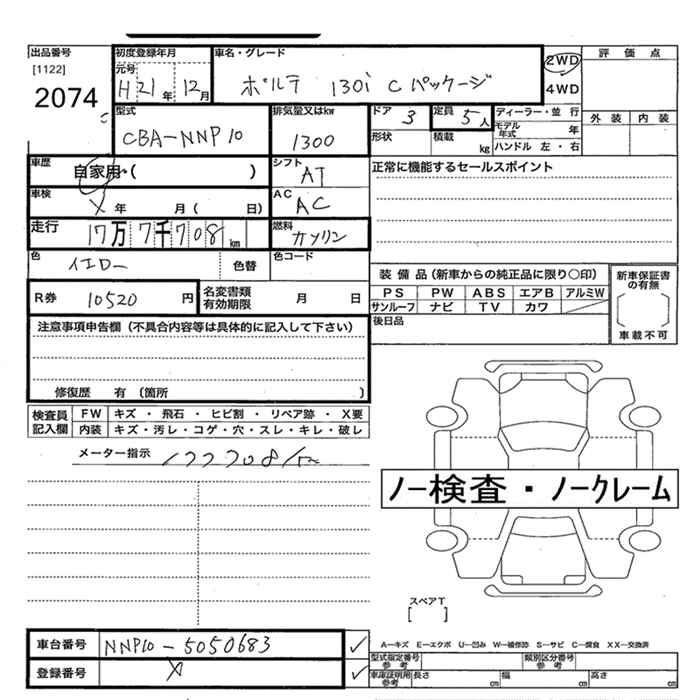 出品番号 初度登録年月 車名・グレード 評価点
[1122] 元号 2WD
2074 H21年 12月 ポルテ 130i Cパッケージ 4WD
型式 排気量又はkw ドア 3 定員 5人 ディーラー・並行 外装 内装
CBA-NNP10 1300 形状 積載 kg モデル年式 年
ハンドル 左・右
車歴 自家用・( ) シフト AT 正常に機能するセールスポイント
車検 X年 月( 日) AC AC
走行 17万7千708km 燃料 ガソリン
色 イエロー 色替 色コード
装備品(新車からの純正品に限り○印) 新車保証書の有無
R券 10520円 名変書類有効期限 月 日 PS PW ABS エアB アルミW
サンルーフ ナビ TV カワ
注意事項申告欄(不具合内容等は具体的に記入して下さい) 後日品 車載不可
修復歴 有(箇所 )
検査員記入欄 FW キズ・飛石・ヒビ割・リペア跡・X要
内装 キズ・汚レ・コゲ・穴・スレ・キレ・破レ
メーター指示 177708km
ノー検査・ノークレーム
スペアT
[ ]
車台番号 NNP10-5050683 A-キズ E-エクボ U-凹み W-補修跡 S-サビ C-腐食 XX-交換済
型式指定番号 参考 類別区分番号 参考
登録番号 X 車庫証明用 参考 長さ cm 幅 cm 高さ cm